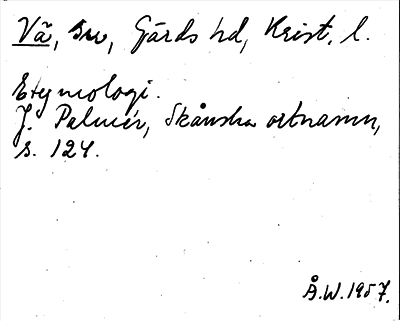 Vä, sn, Gärds hd, Krist. l.
Etymologi.
J. Palmér, Skånska ortnamn,
s. 124.
Å.W. 1957.